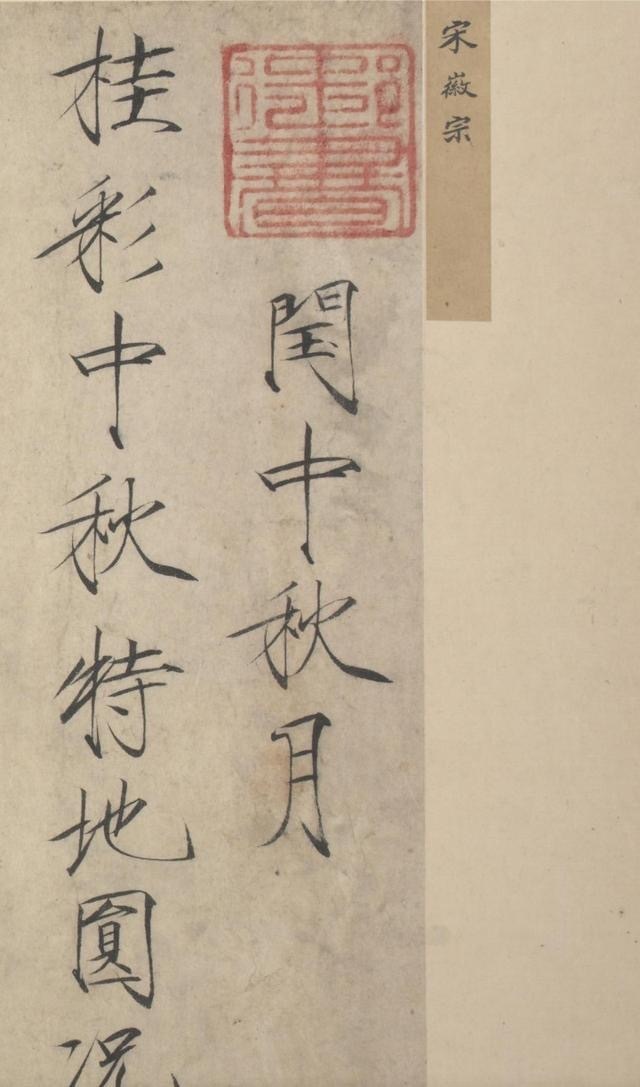 宋徽宗
閏中秋月
桂彩中秋特地圓況